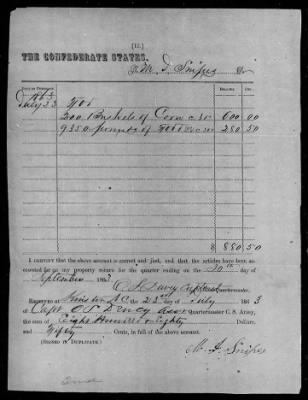 [12.]
THE CONFEDERATE STATES,
To M. D. Snipes Dr.
DATE OF PURCHASE. DOLLARS. CTS.
1863
July 23 For
200 Bushels of Corn 600 00
9350 pounds of 280 50
$ 880.50
I CERTIFY that the above account is correct and just, and that the articles have been
accounted for on my property return for the quarter ending on the 30th day of
September 1863
RECEIVED at Kinston N.C the 23rd day of July 1863
of Capt Quartermaster C. S. Army,
the sum of Eight Hundred & Eighty Dollars,
and Fifty Cents, in full of the above account.
[SIGNED IN DUPLICATE.]
M. D. Snipes